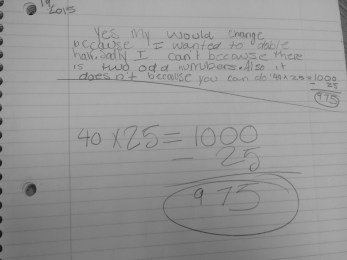 2015
Yes My would change
because I wanted to doble
half. Sadly I can't because there
is two odd numbers. Also it
doesn't because you can do 40 x 25 = 1000
- 25
975
40 x 25 = 1000
- 25
975